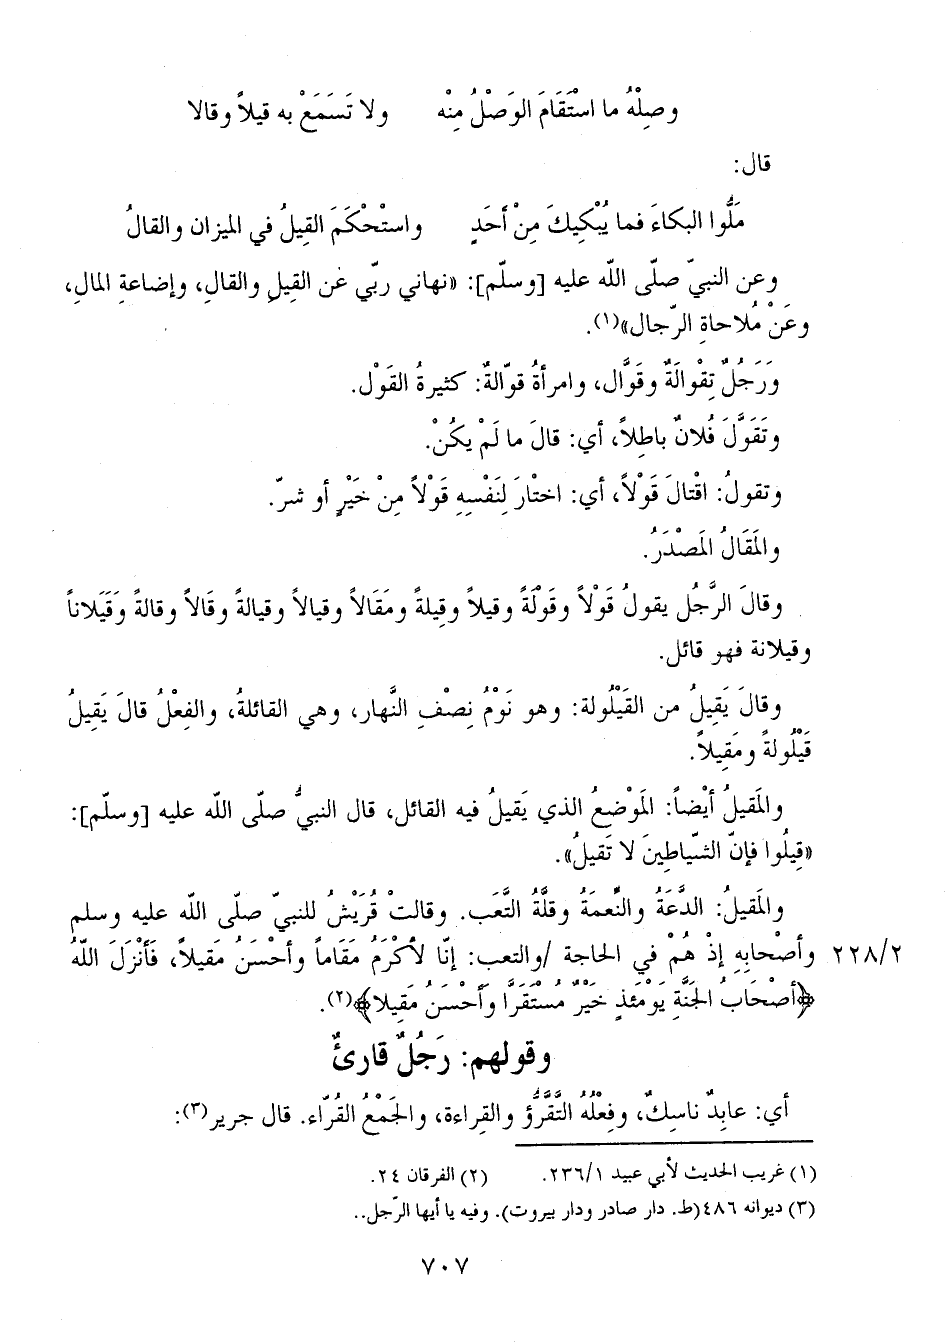 وصِلْهُ ما اسْتَقَامَ الوَصْلُ مِنْه ولا تَسَمَعْ به قيلاً وقالا
قال:
مَلُّوا البكاءَ فما يُبْكِيكَ مِنْ أحَدٍ واستْحكَمَ القِيلُ في الميزان والقالُ
وعن النبيّ صلّى اللّه عليه [وسلّم]: «نهاني ربّي عَن القِيلِ والقالِ، وإضاعةِ المالِ،
وعَنْ مُلاحاةِ الرّجال»(١).
وَرَجُلٌ تِقْوالَةٌ وقَوَّال، وامرأةُ قوّالةٌ: كثيرةُ القَوْل.
وتَقَوَّلَ فُلانٌ باطِلاً، أي: قالَ ما لَمْ يكُنْ.
وتقولُ: اقْتالَ قَوْلاً، أي: اختْارَ لِنَفْسِهِ قَوْلاً مِنْ خَيْرٍ أو شرّ.
والمَقَالُ المَصْدَرُ.
وقالَ الرَّجُل يقولُ قَوْلاً وقَوْلَةً وقيلاً وقِيلةً ومقَالاً وقيالاً وقيالةً وقَالاً وقالةً وَقَيَلاناً
وقيلانة فهو قائل.
وقالَ يَقِيلُ من القَيْلُولة: وهو نَوْمُ نِصْفِ النَّهار، وهي القائلةُ، والفِعْلُ قالَ يَقِيلُ
قَيْلُولةً ومَقِيلاً.
والمَقيلُ أيْضاً: المَوْضعُ الذي يَقيلُ فيه القائل، قال النبيُّ صلّى اللّه عليه [وسلّم]:
«قِيلُوا فإنّ الشّياطِينَ لا تَقيلُ».
والمَقيلُ: الدَّعَةُ والنَّعمَةُ وقلَّةُ التَّعَب. وقالتْ قُرَيْشُ للنبيّ صلّى اللّه عليه وسلم
وأصْحابِهِ إذْ هُمْ في الحاجة /والتعب: إنّا لأكْرَمُ مَقَاماً وأحْسَنُ مَقيلاً، فَأنْزَلَ اللّهُ ٢٢٨/٢
﴿أصْحَابُ الجَنَّةِ يَوْمَئذٍ خَيْرٌ مُسْتَقَرَّاً وَأحْسَنُ مَقِيلا﴾(٢).
وقولهم: رَجُلٌ قارئٌ
أي: عابِدٌ ناسِكٌ، وفعْلُهُ التَّقَرُّؤ والقِراءة، والجَمْعُ القُرّاء. قال جرير(٣):
(١) غريب الحديث لأبي عبيد ٢٣٦/١. (٢) الفرقان ٢٤.
(٣) ديوانه ٤٨٦(ط. دار صادر ودار بيروت). وفيه يا أيها الرّجل..
٧٠٧